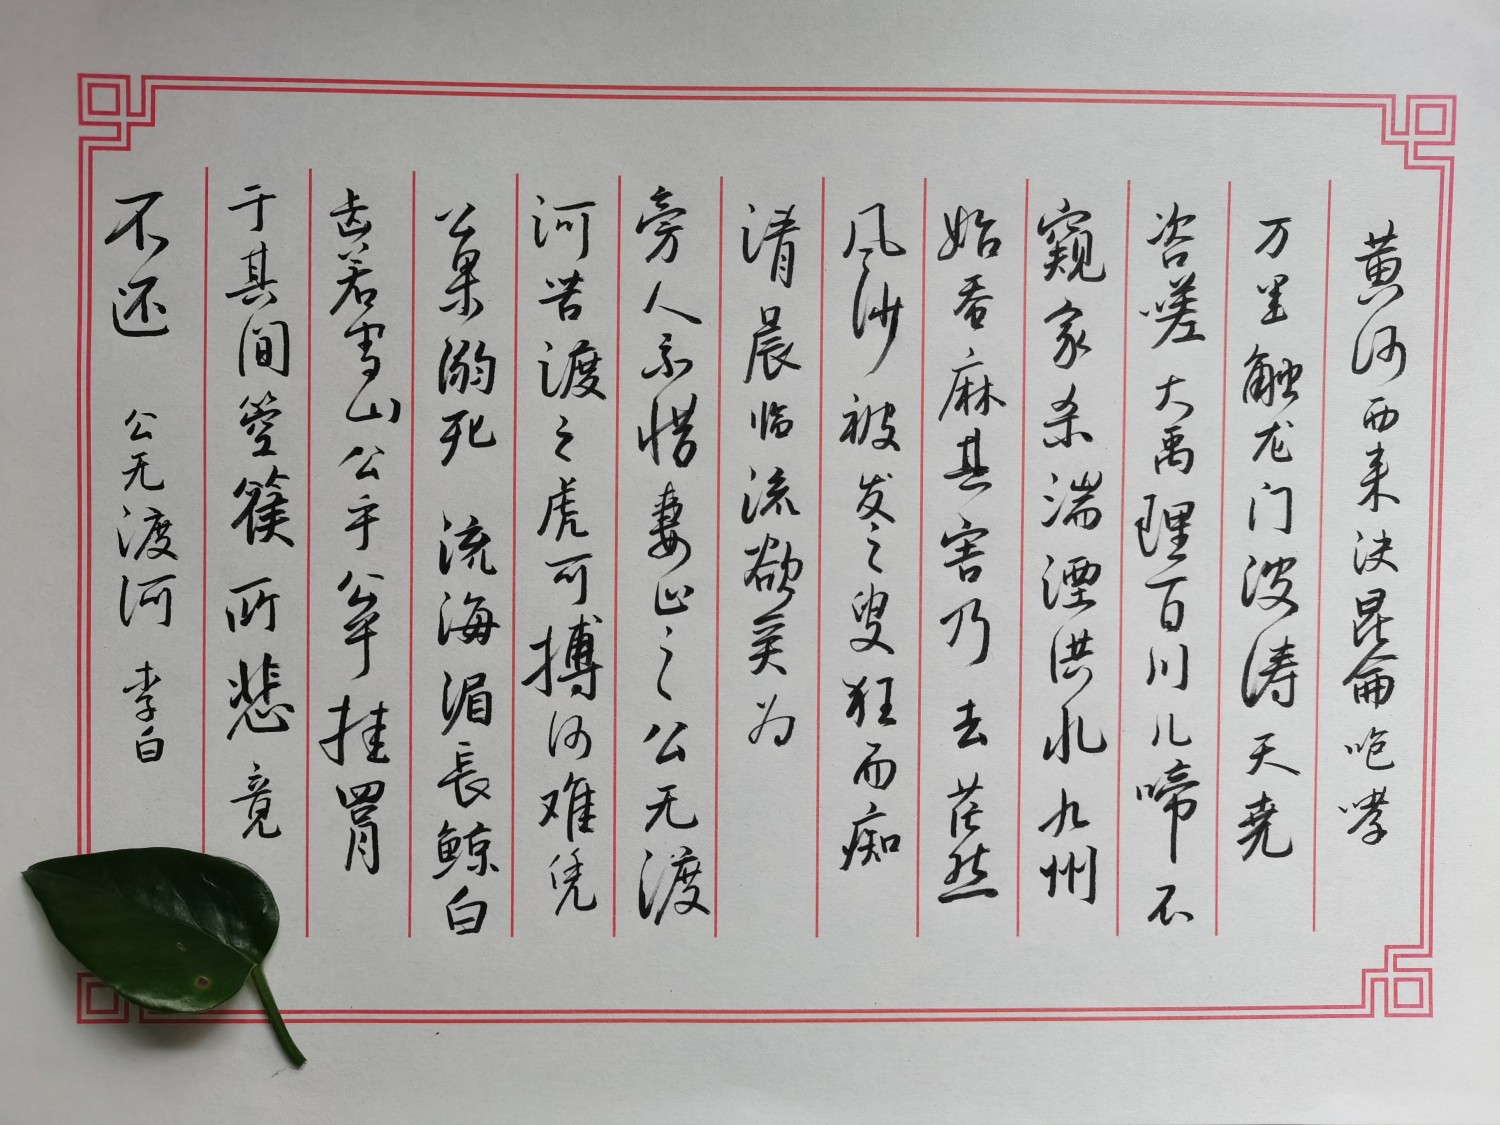 黄河西来决昆仑咆哮
万里触龙门波涛天尧
咨嗟大禹理百川儿啼不
窥家杀湍湮洪水九州
始蚕麻其害乃去茫然
风沙被发之叟狂而痴
清晨临流欲奚为
旁人不惜妻止之公无渡
河苦渡之虎可搏河难凭
公果溺死流海湄長鲸白
齿若雪山公乎公乎挂罥
于其间箜篌所悲竟
不还 公无渡河 李白